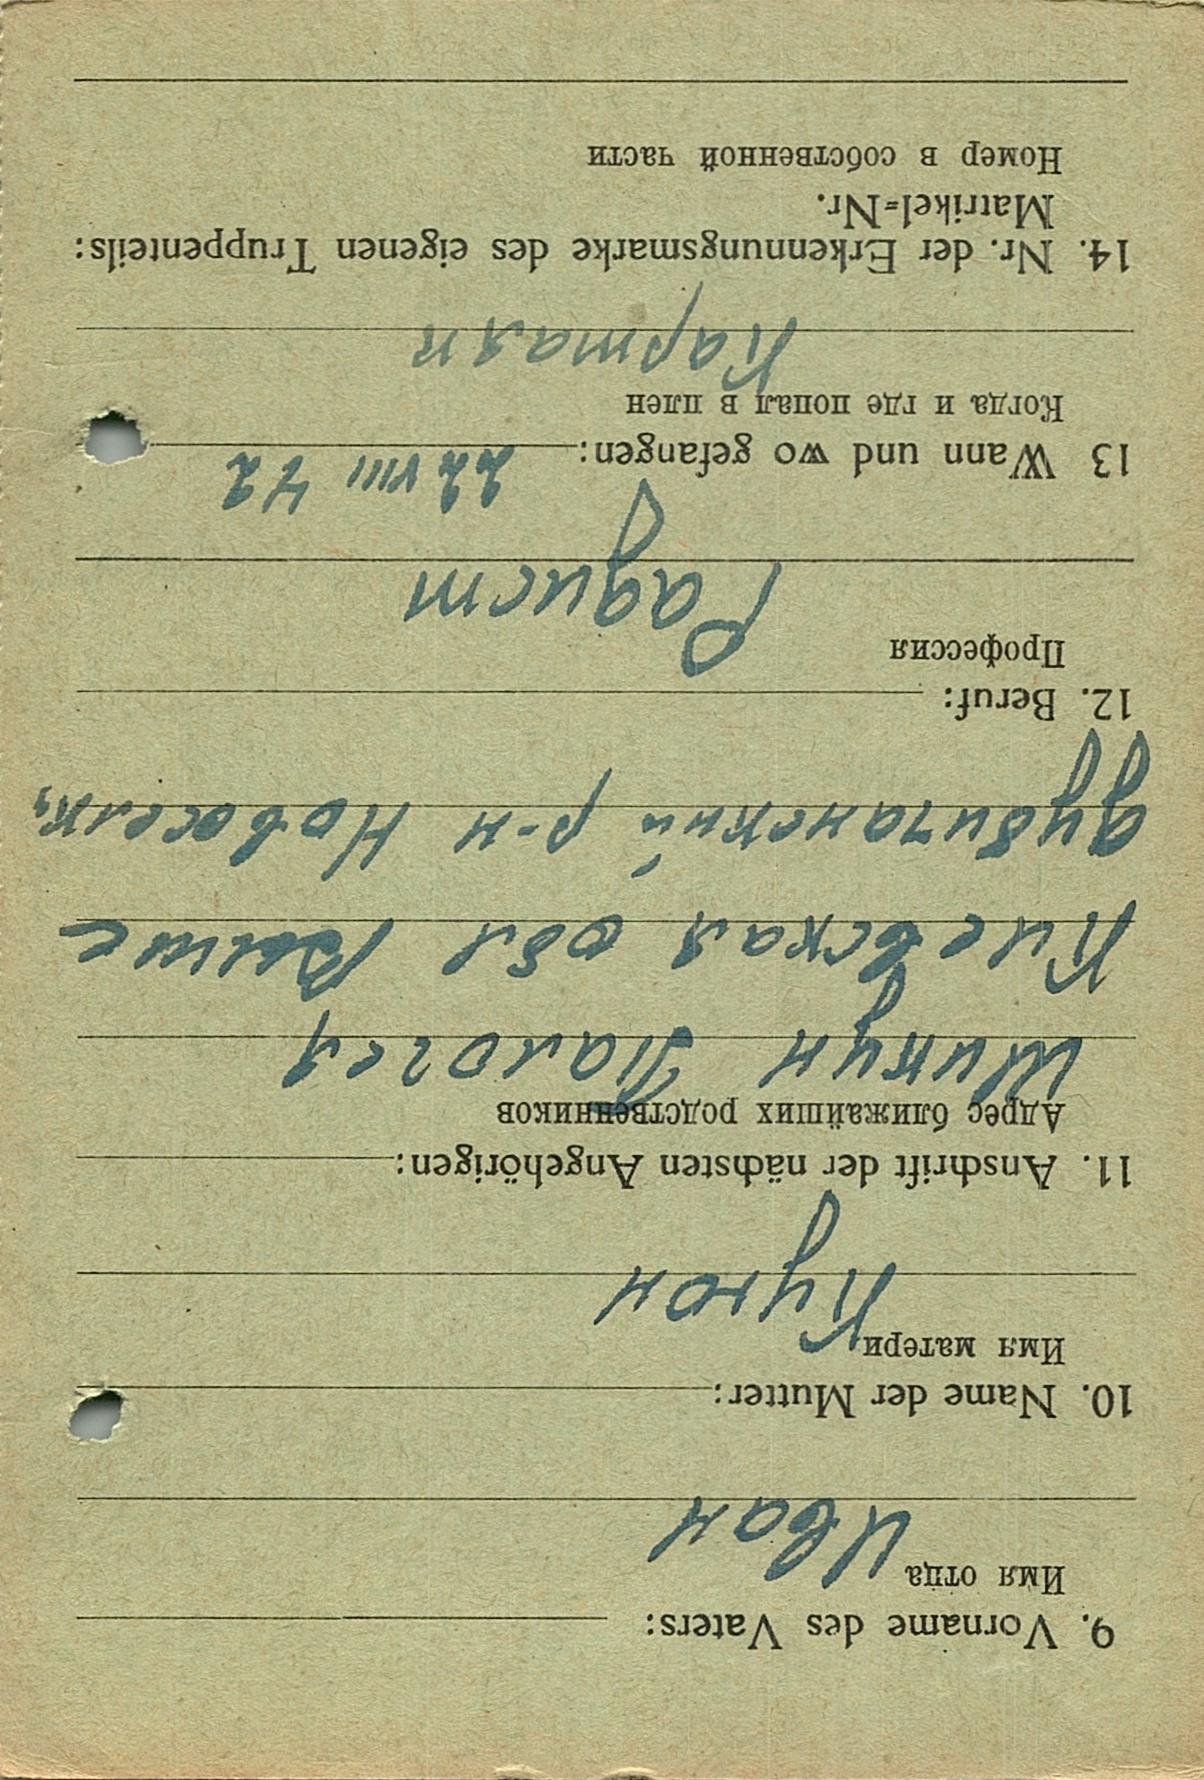 9. Vorname des Vaters:
Имя отца Иван
10. Name der Mutter:
Имя матери Кулон
11. Anschrift der nächsten Angehörigen:
Адрес ближайших родственников
Шикун
Киевская обл Выше
дубичанский р-н Новоселк,
12. Beruf:
Профессия
Радист
13 Wann und wo gefangen: 22 VIII 42
Когда и где попал в плен
14. Nr. der Erkennungsmarke des eigenen Truppenteils:
Matrikel=Nr.
Номер в собственной части